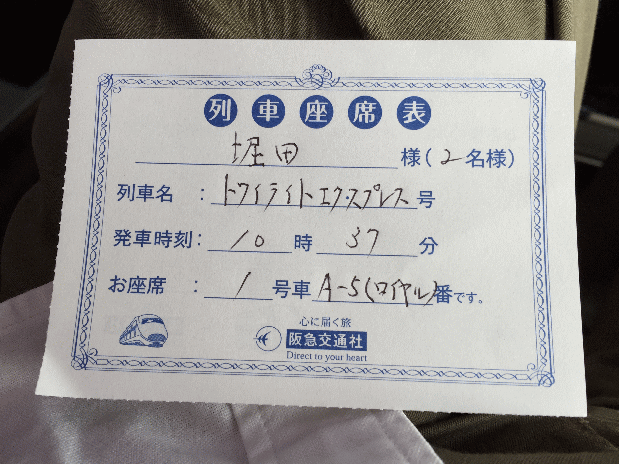 列車座席表
堀田 様(2名様)
列車名：トワイライトエクスプレス号
発車時刻：10時37分
お座席：1号車A-5(ロイヤル)番です。
心に届く旅
阪急交通社
Direct to your heart